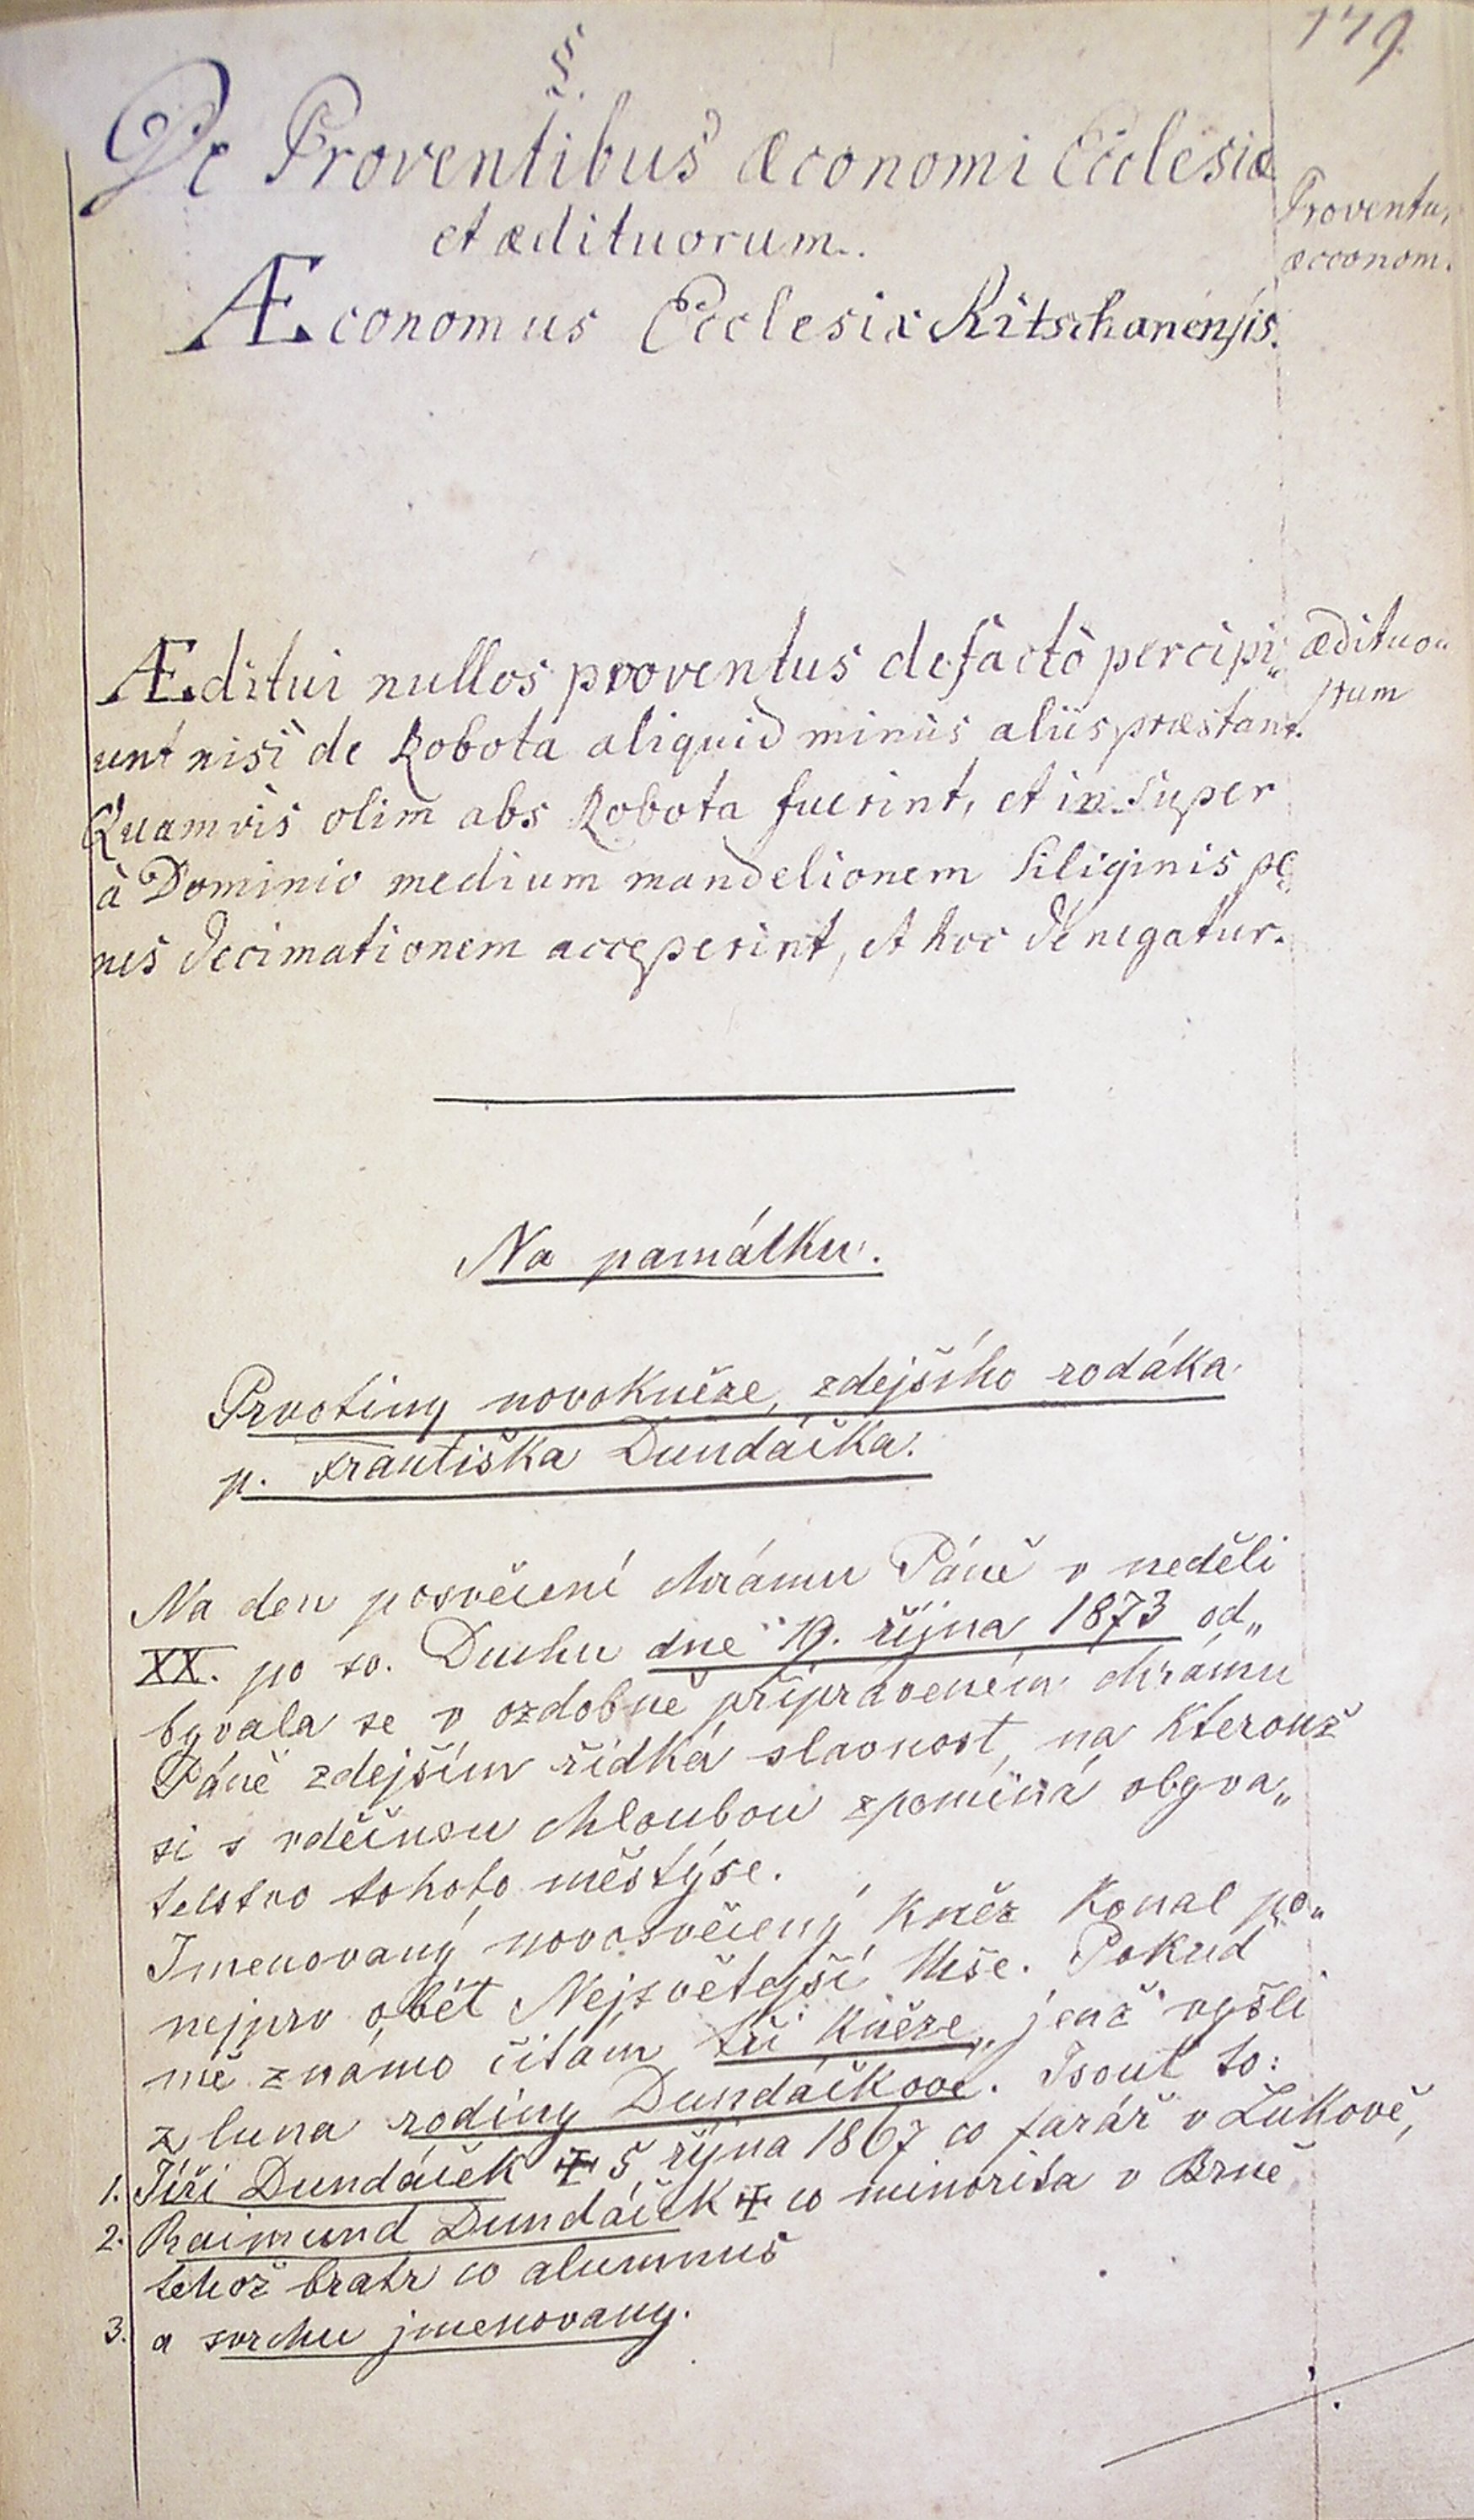 179.
§.
De Proventibus æconomi Ecclesiæ
et ædituorum.
Proventu,
æconom.
Æconomus Ecclesiæ Ritschanensis.
Æditui nullos proventus defacto percipi„
ædituo„
rum
unt nisi de Robota aliquid minus aliis præstant.
Quamvis olim abs Robota fuerint, et in super
à Dominio medium mandelionem siliginis pe„
nes decimationem acceperint, et hoc denegatur.
Na památku.
Prvotiny novokněze, zdejšího rodáka
p. Františka Dundáčka.
Na den posvěcení chrámu Páně v neděli
XX. po sv. Duchu dne 19. října 1873 od„
byvala se v ozdobně připráveném chrámu
Páně zdejším řídká slavnost, na kterouž
si s vděčnou chloubou zpomíná obyva„
telstvo tohoto městýse.
Jmenovaný novosvěcený kněz konal po„
nejprv obět Nejsvětejší Mše. Pokud
mě známo čítám tři kněze„ jenž vyšli
z luna rodiny Dundáčkové. Jsout to:
1. Jiři Dundáček ✝ 5 října 1867 co farář v Lukově,
2. Raimund Dundáček ✝ co minorita v Brně
tehož bratr co alumnus
3. a svrchu jmenovany.